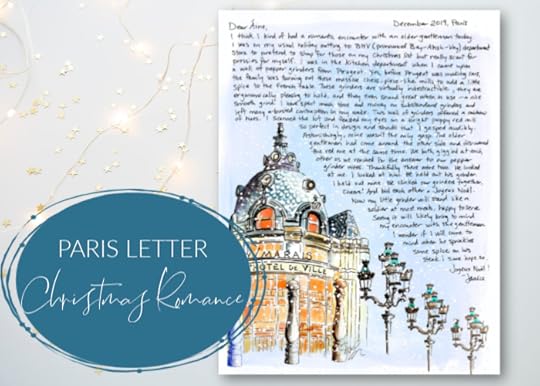 Dear Áine,
December 2019, Paris
I think I kind of had a romantic encounter with an older gentleman today.
I was on my usual holiday outing to BHV (pronounced Bay-Ahsh-Vay) department
store to pretend to shop for those on my Christmas list but really scout for
pressies for myself. I was in the kitchen department when I came upon
a wall of pepper grinders from Peugeot. Yes, before Peugeot was making cars,
the family was turning out these massive chess-piece-like mills to add a little
spice to the French table. These grinders are virtually indestructible, they are
ergonomically pleasing to hold, and they even sound great when in use - a nice
smooth grind. I had spent much time and money on substandard grinders and
left many a busted contraption in my wake. This wall of grinders offered a rainbow
of hues. I scanned the lot and feasted my eyes on a bright poppy red mill
so perfect in design and shade that I gasped audibly.
Astonishingly, mine wasn't the only gasp. The older
gentleman had come around the other side and discovered
the red one at the same time. We both giggled at each
other as we reached for the answer to our pepper
grinder woes. Thankfully there were two. He looked
at me. I looked at him. He held out his grinder.
I held out mine. He clinked our grinders together,
Cheers! And bid each other a Joyeux Noël.
Now my little grinder will stand like a
soldier at most meals, happy to serve.
Seeing it will likely bring to mind
my encounter with the gentleman.
I wonder if I will come to
mind when he sprinkles
some spice on his
steak. I sure hope so.
Joyeux Noël!
Janice
MARAIS
HÔTEL DE VILLE
PARIS LETTER
Christmas Romance